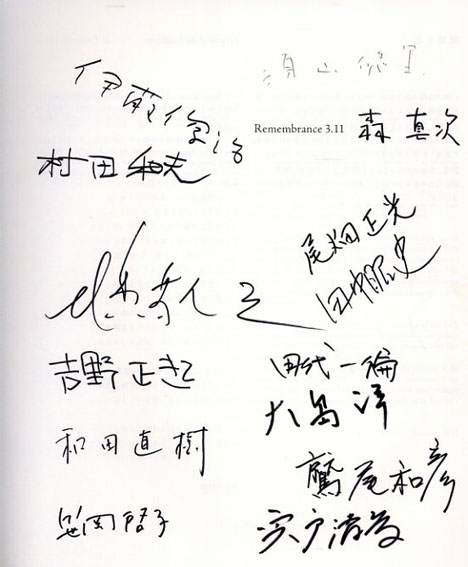 伊藤俊治
須山悠里
Remembrance 3.11
森真次
村田和夫
尾畑正光
田中昭史
北島敬三
吉野正起
田代一倫
大島洋
和田直樹
鷲尾和彦
笹岡啓子
宍戸清孝